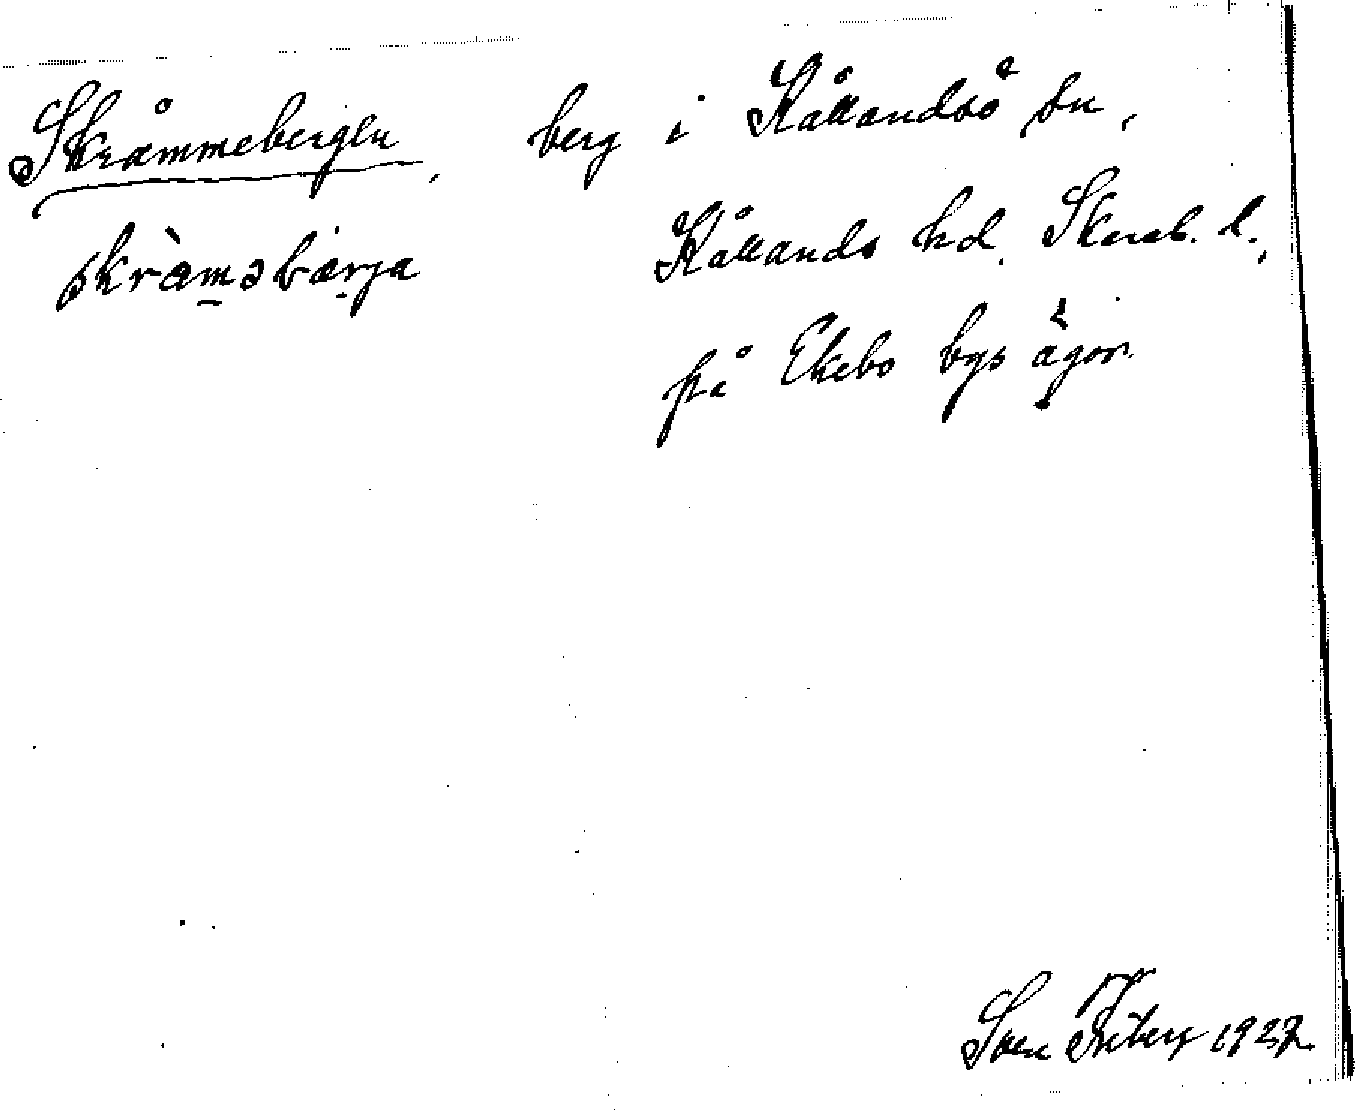 Skråmmebergen, berg i Kållandsö sn,
skràməbärja Kållands hd. Skarab. l.,
på Ekebo bys ägor.
Sven Friberg 1927